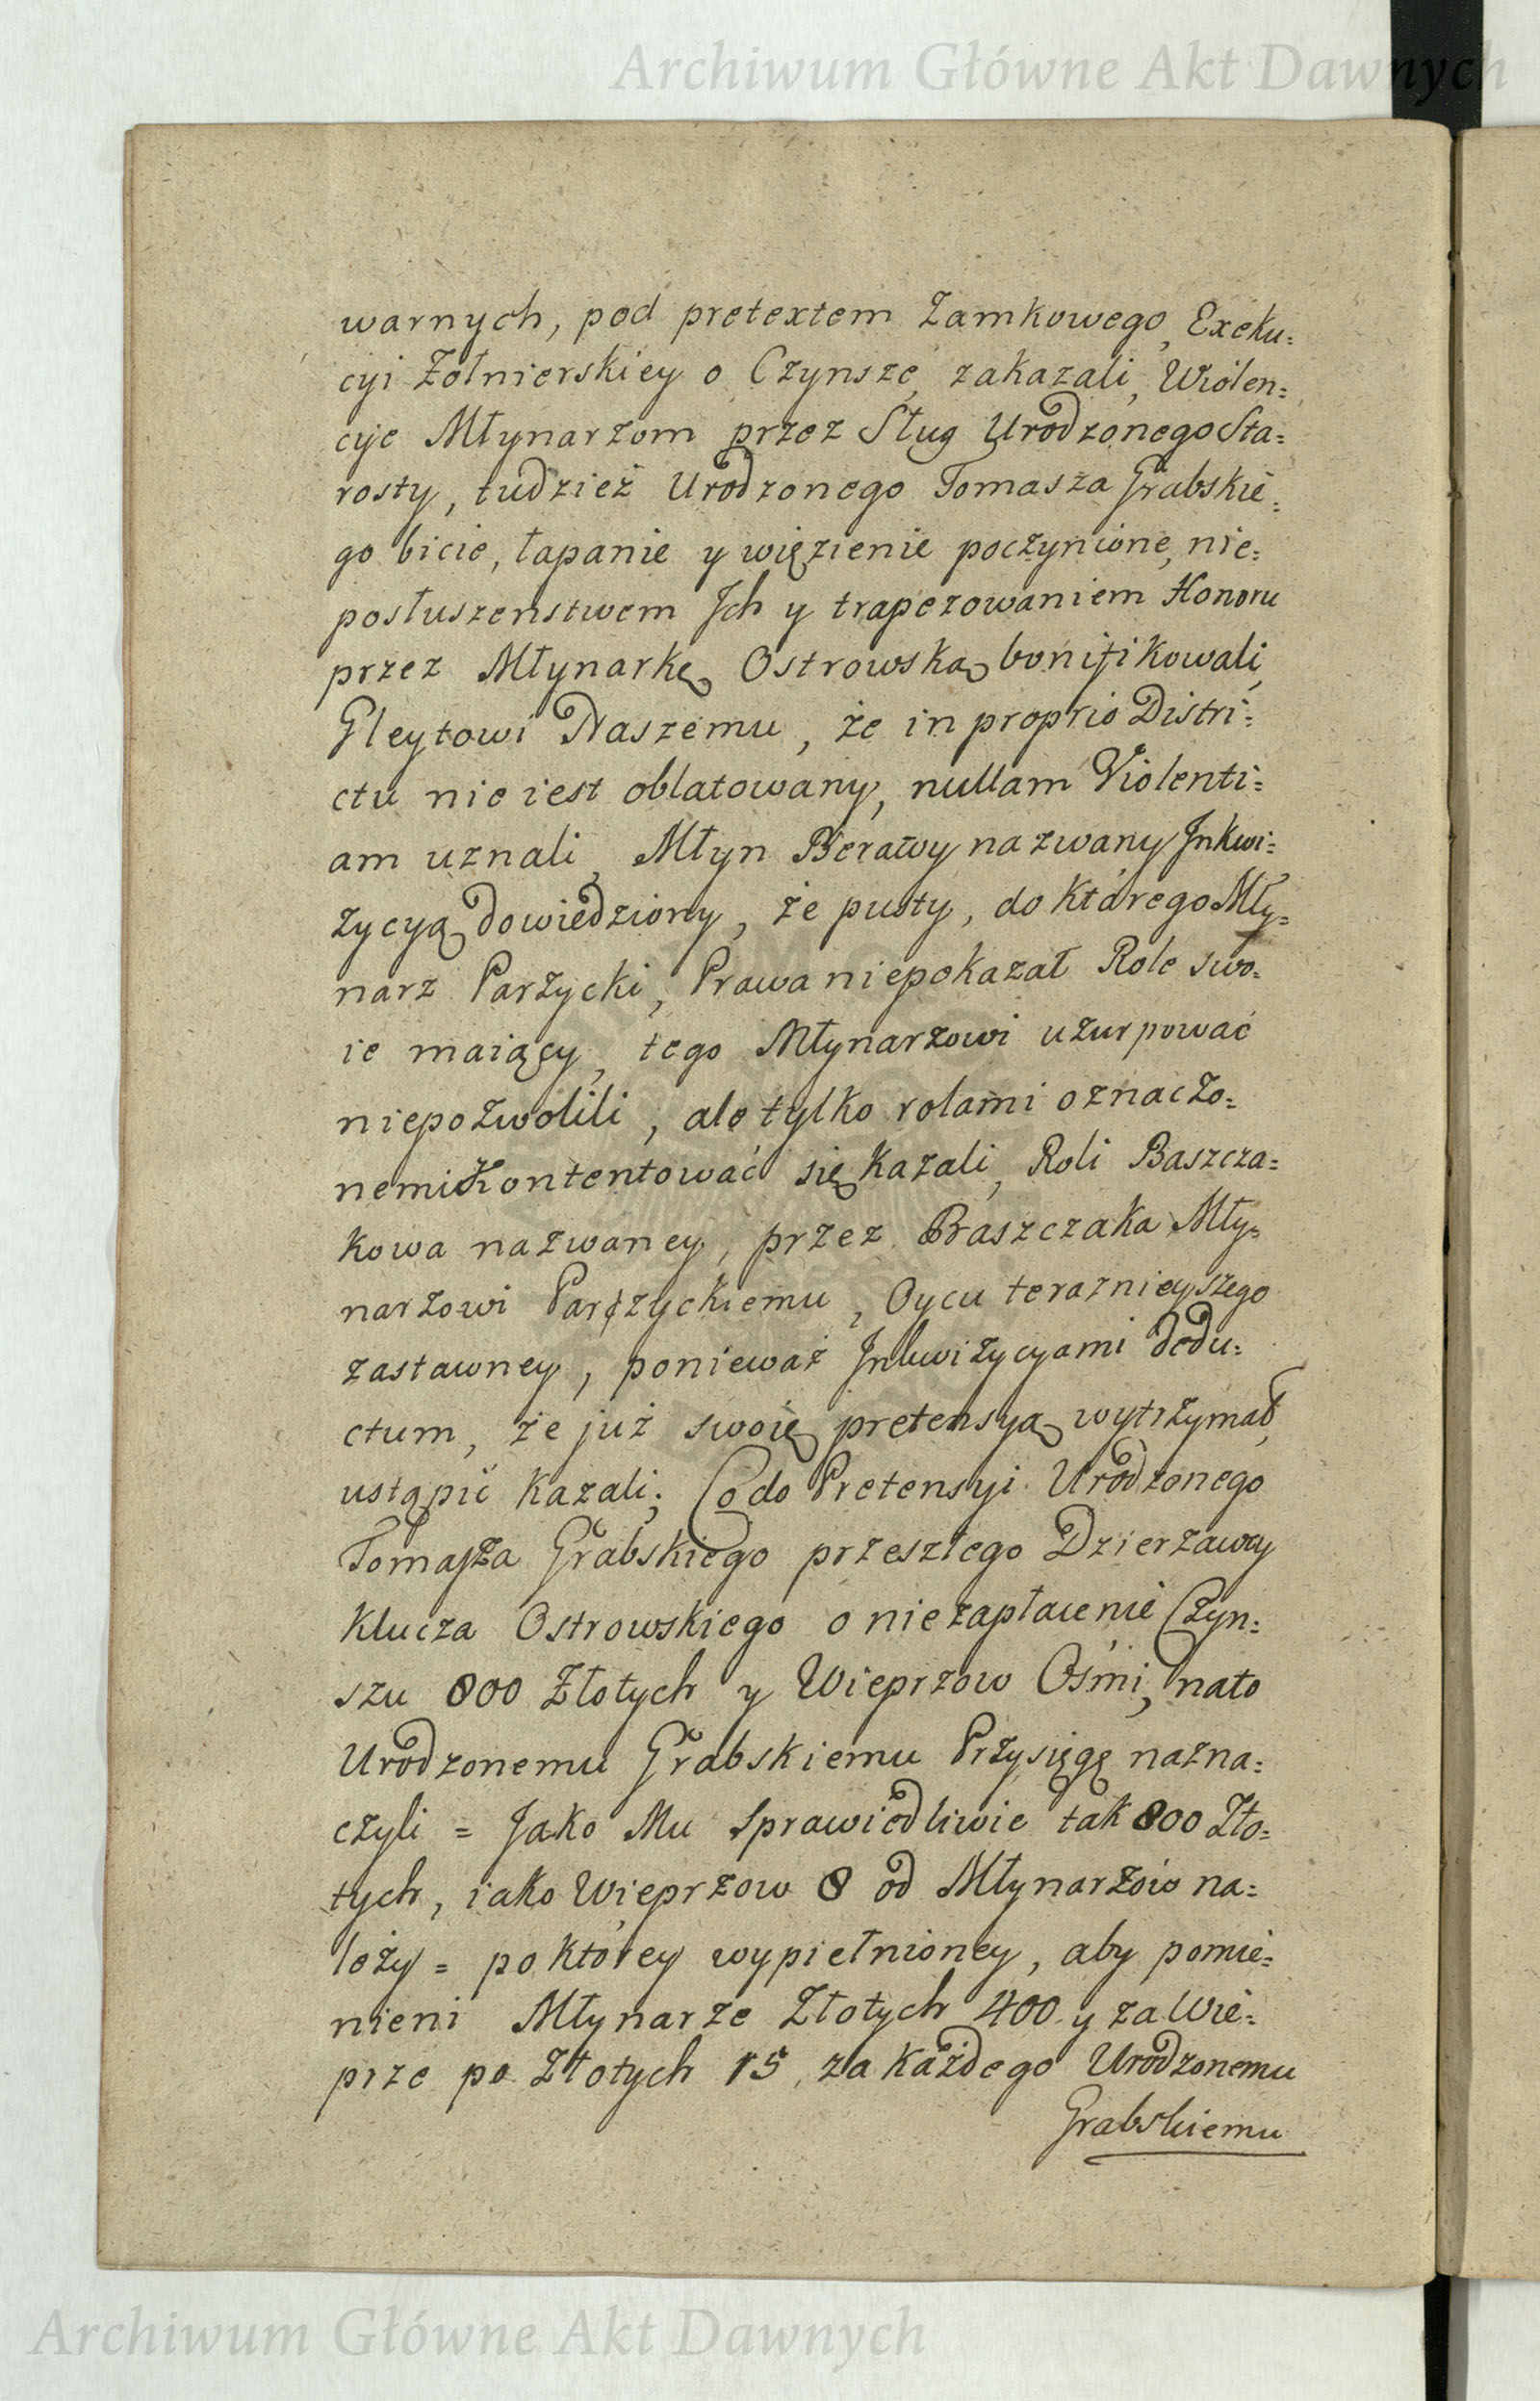 Archiwum Główne Akt Dawnych
warnych, pod pretextem Zamkowego, Exeku=
cyi Żołnierskiey o Czynsze, zakazali, Wiolen=
cyje Młynarzom przez Sług Urodzonego Sta=
rosty, tudzież Urodzonego Tomasza Grabskie=
go bicie, łapanie y więzienie poczynione, nie=
posłuszenstwem Jch y trapezowaniem Honoru
przez Młynarkę Ostrowską bonifikowali,
Gleytowi Naszemu, że in proprio Distri=
ctu nie iest oblatowany, nullam Violenti=
am uznali, Młyn Berawy nazwany Jnkwi=
zycyą dowiedziony, że pusty, do którego Mły=
narz Parzycki, Prawa niepokazał Role swo=
ie maiący, tego Młynarzowi uzurpować
niepozwolili, ale tylko rolami oznaczo=
nemi Kontentować się kazali, Roli Baszcza=
kowa nazwaney, przez Baszczaka Mły=
narzowi Parzyckiemu, Oycu teraznieyszego
zastawney, ponieważ Jnkwizycyami dedu=
ctum, że już swoię pretensyą wytrzymał,
ustąpić kazali; Co do Pretensyi Urodzonego
Tomasza Grabskiego przeszłego Dzierzawcy
Klucza Ostrowskiego o niezapłacenie Czyn=
szu 800 Złotych y Wieprzow Ośmi, na to
Urodzonemu Grabskiemu Przysięgę nazna=
czyli = Jako Mu sprawiedliwie tak 800 Zło=
tych, iako Wieprzow 8 od Młynarzów na=
leży = po którey wypiełnioney, aby pomie=
nieni Młynarze Złotych 400 y za Wie=
prze po Złotych 15, za każdego Urodzonemu
Grabskiemu
Archiwum Główne Akt Dawnych